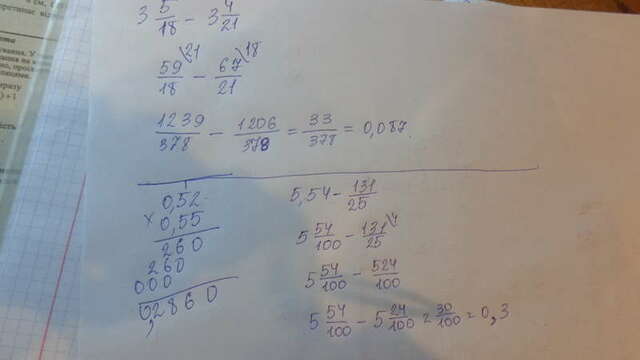 3 5/18 - 3 4/21
59/18 \21 - 67/21 \18
1239/378 - 1206/378 = 33/378 = 0,087.
0,52
× 0,55
260
260
000
0,2860
5,54 - 131/25
5 54/100 - 131/25 \4
5 54/100 - 524/100
5 54/100 - 5 24/100 = 30/100 = 0,3